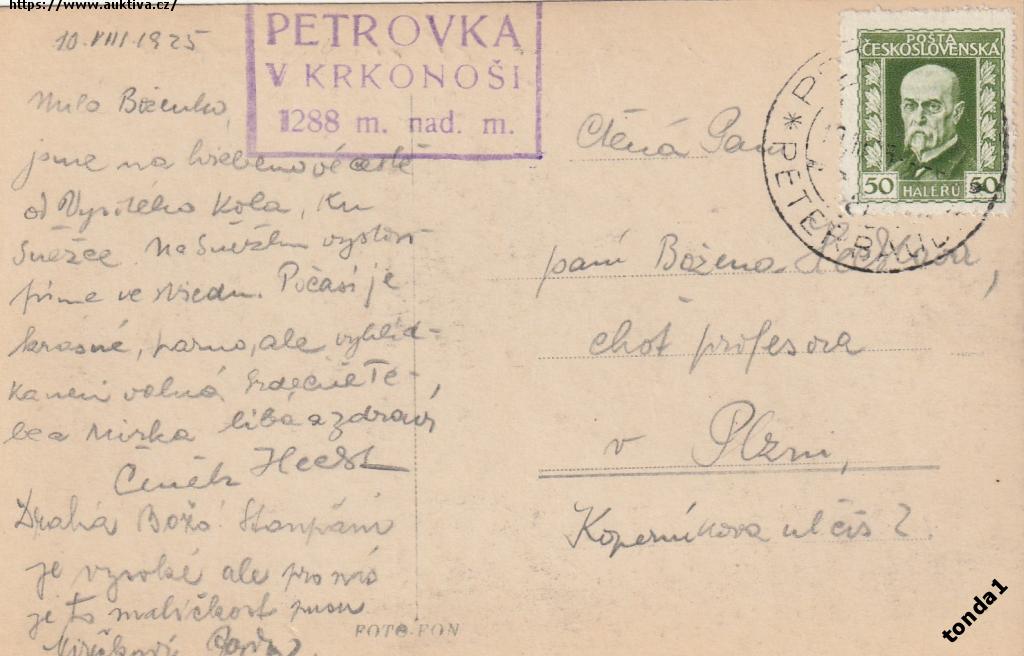 https://www.auktiva.cz/
10.VIII.1925
PETROVKA
V KRKONOŠI
1288 m. nad. m.
Milá Boženko,
jsme na hřebenové cestě
od Vysokého Kola, ku
Sněžce. Na Sněžku vystou-
píme ve středu. Počasí je
krásné, parno, ale vyhlíd-
ka není volná. Srdečně Te-
be a Mirka líbá a zdraví
Čeněk
Drahá Božo! Stoupání
je vysoké ale pro nás
je to maličkost
POŠTA
ČESKOSLOVENSKA
50 HALÉŘŮ 50
Ctěná Paní
paní Božena
choť profesora
v Plzni,
Koperníkova ul čís 2.
FOTO-FON
tonda1